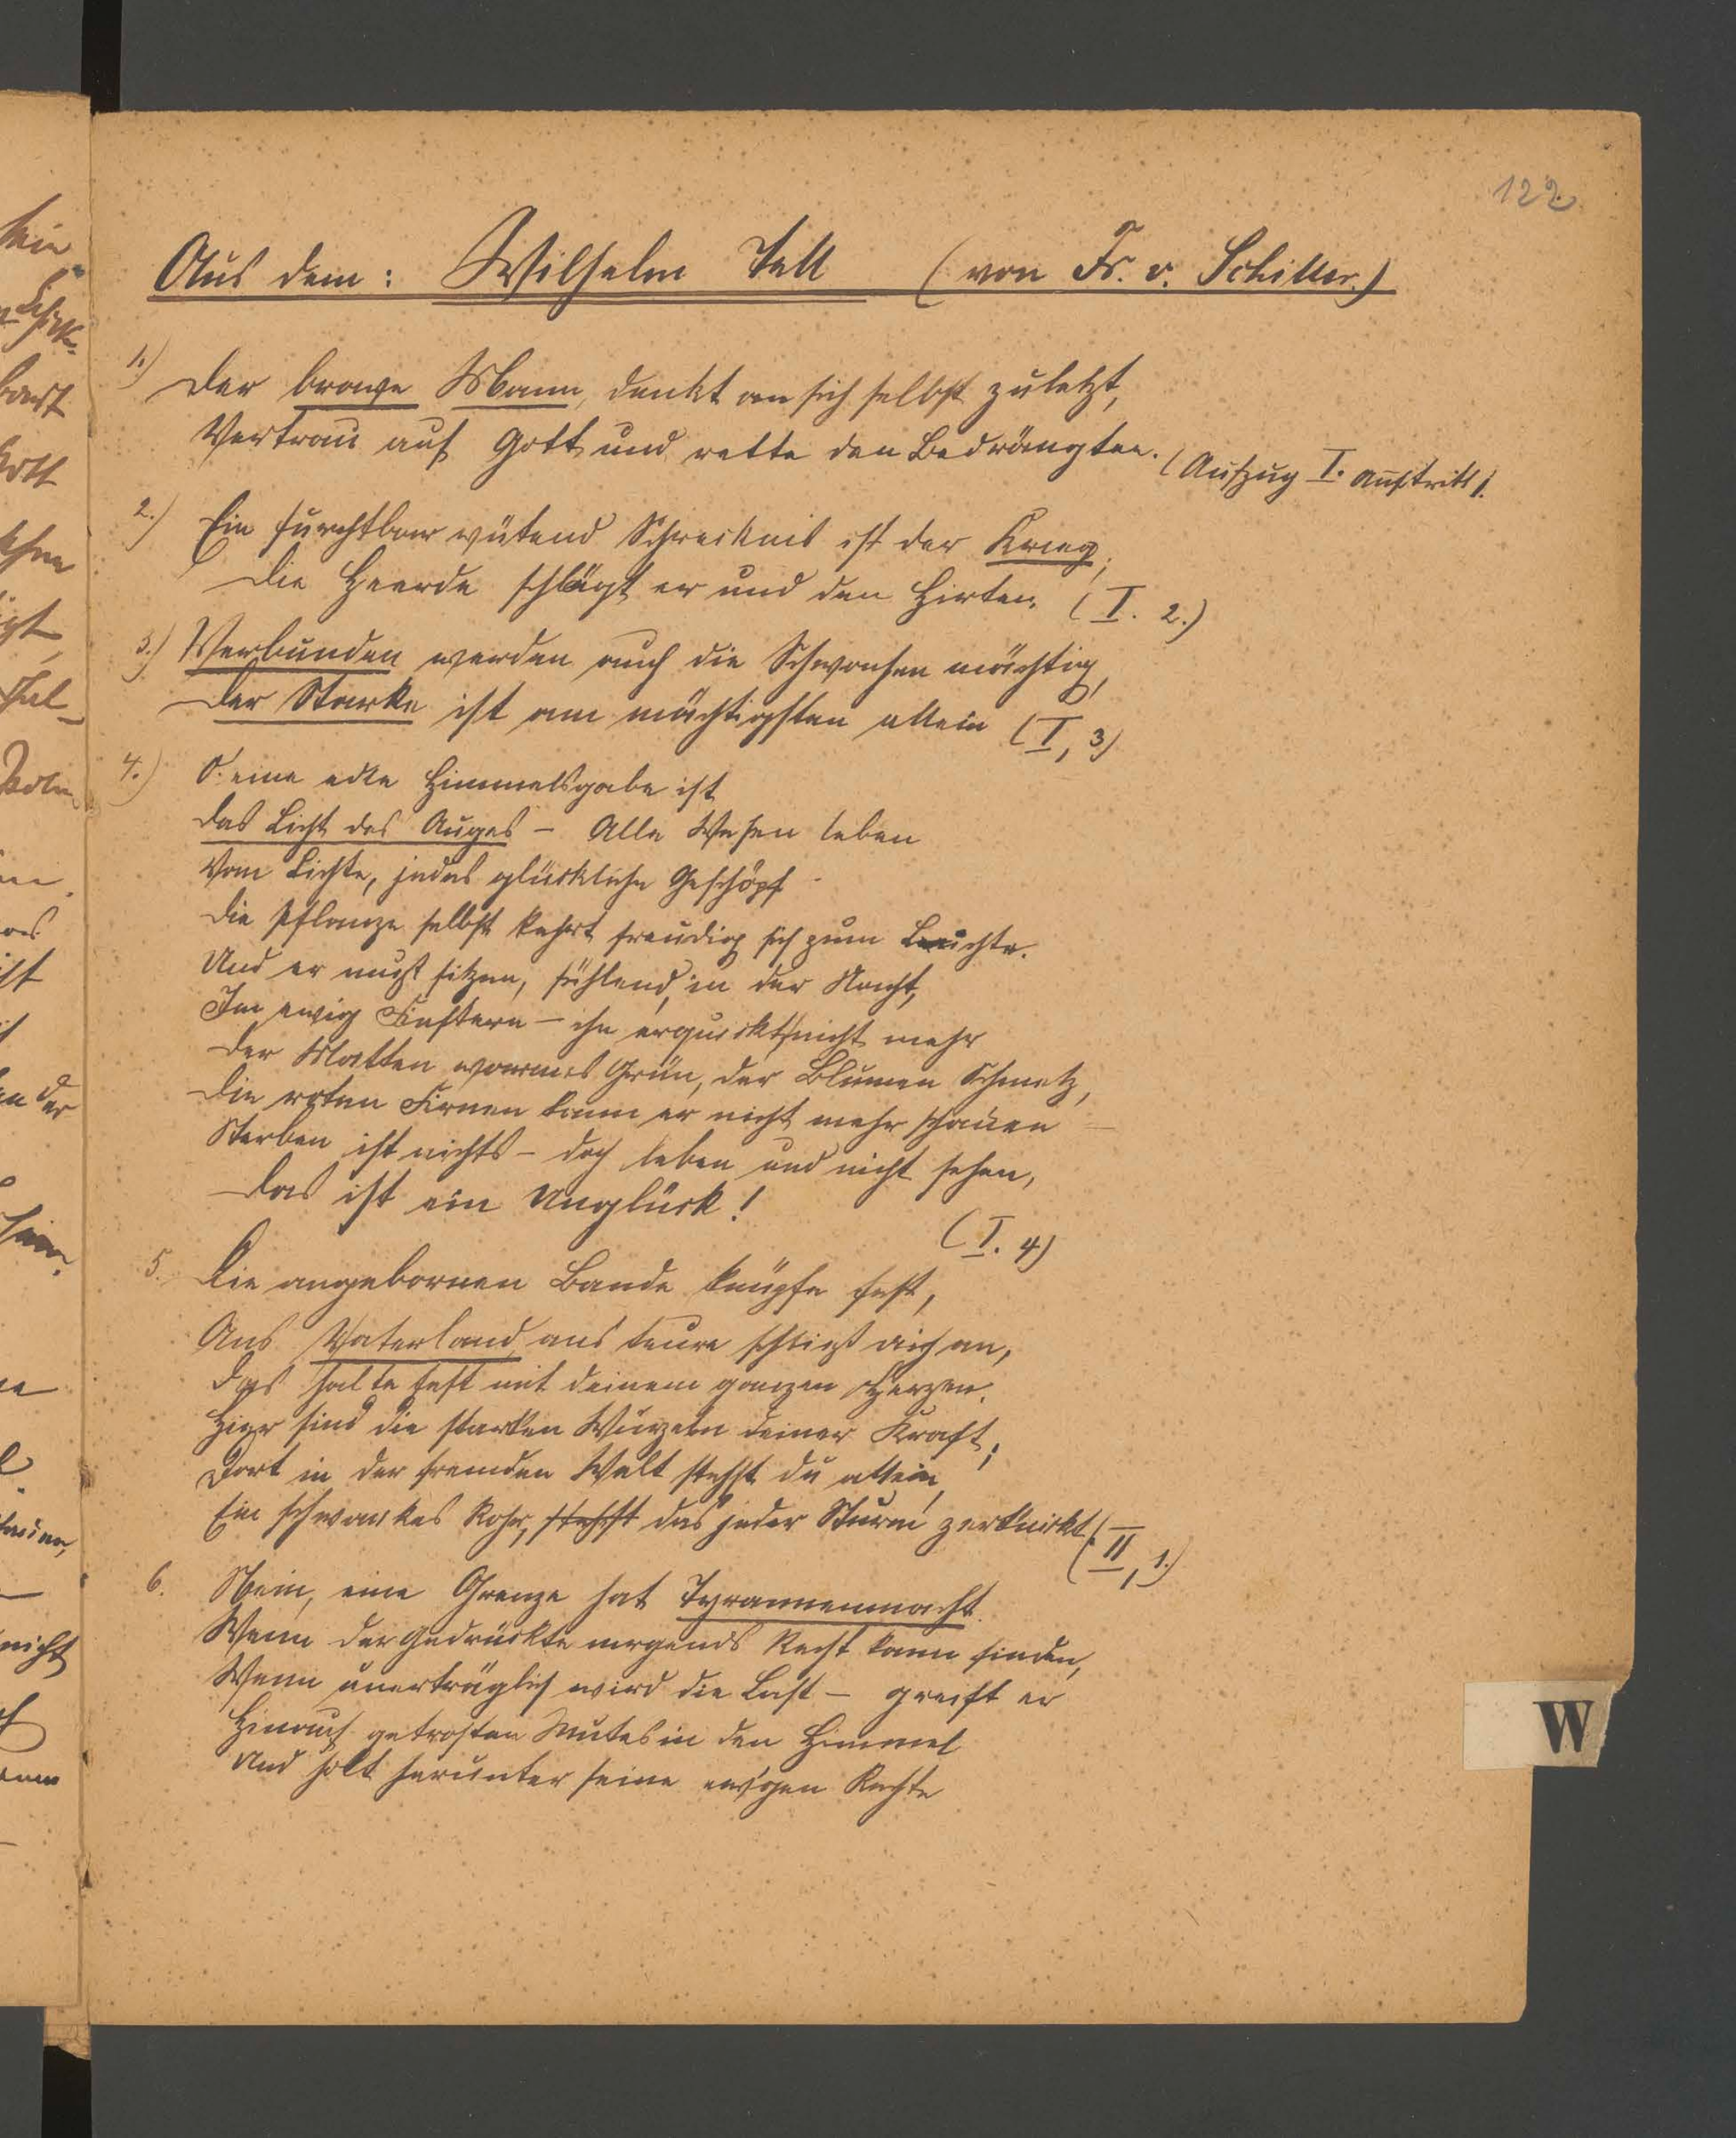 122
Aus dem: Wilhelm Tell (von Fr. v. Schiller.)
1.) Der brave Mann, denkt an sich selbst zuletzt,
Vertrau auf Gott und rette den Bedrängten. (Aufzug I. Auftritt 1.
2.) Ein furchtbar wütend Schrecknis ist der Krieg,
Die Heerde schlägt er und den Hirten. (I. 2.)
3.) Verbunden werden auch die Schwachen mächtig,
Der Starke ist am mächtigsten allein (I, 3)
4.) O. eine edle Himmelsgabe ist
das Licht des Auges – Alle Wesen leben
Vom Lichte, jedes glückliche Geschöpf –
Die Pflanze selbst kehrt freudig sich zum Lichte.
Und er muß sitzen, fühlend, in der Nacht,
Im ewig Finstern – ihn erquickt nicht mehr
Der Matten warmes Grün, der Blumen Schmelz,
Die roten Firnen kann er nicht mehr schauen –
Sterben ist nichts – doch leben und nicht sehen,
Das ist ein Unglück!
(I. 4)
5. Die angebornen Bande knüpfe fest,
Ans Vaterland, ans teure schließ dich an,
Das halte fest mit deinem ganzen Herzen.
Hier sind die starken Wurzeln deiner Kraft;
Dort in der fremden Welt stehst du allein,
Ein schwankes Rohr, stehst das jeder Sturm zerknickt.
(II, 1.)
6. Nein, eine Grenze hat Tyrannenmacht.
Wenn der Gedrückte nirgends Recht kann finden,
Wenn unerträglich wird die Last – greift er
Hinauf getrosten Mutes in den Himmel
Und holt herunter seine ew'gen Rechte
W